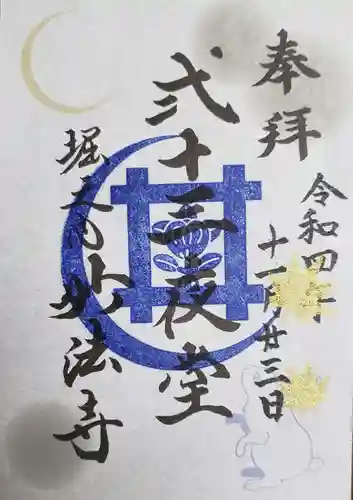 奉拝
令和四年
十一月廿三日
弐十三夜堂
堀之内妙法寺